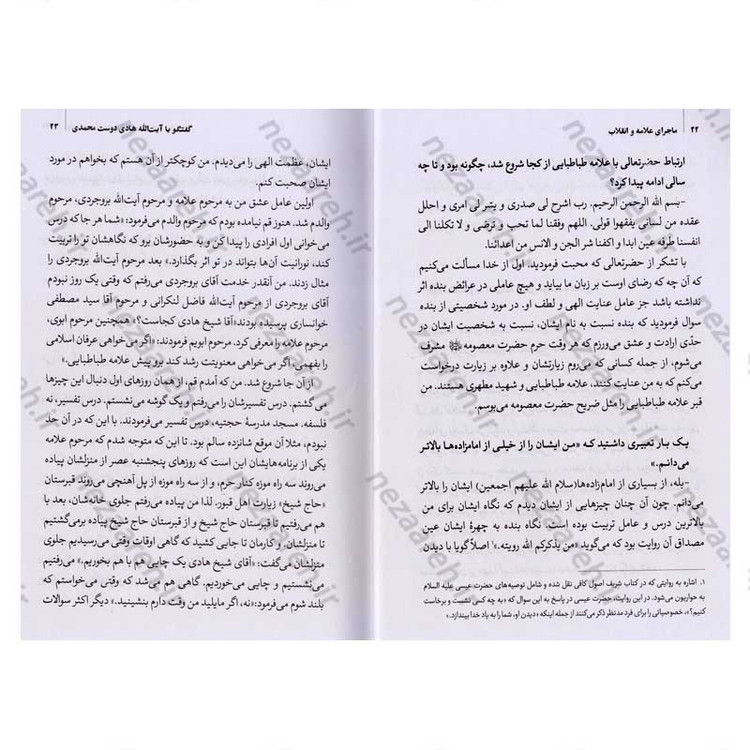 ۲۲ ماجرای علامه و انقلاب
ارتباط حضرتعالی با علامه طباطبایی از کجا شروع شد، چگونه بود و تا چه
سالی ادامه پیدا کرد؟
-بسم الله الرحمن الرحیم. رب اشرح لی صدری و یسّر لی امری و احلل
عقده من لسانی یفقهوا قولی. اللهم وفقنا لما تحب و ترضی و لا تکلنا الی
انفسنا طرفه عین ابدا و اکفنا شر الجن و الانس من اعدائنا.
با تشکر از حضرتعالی که محبت فرمودید. اول از خدا مسألت می‌کنیم
که آن چه که رضای اوست بر زبان ما بیاید و هیچ عاملی در عرائض بنده اثر
نداشته باشد جز عامل عنایت الهی و لطف او. در مورد شخصیتی از بنده
سوال فرمودید که بنده نسبت به نام ایشان، نسبت به شخصیت ایشان در
حدّی ارادت و عشق می‌ورزم که هر وقت حرم حضرت معصومه مشرف
می‌شوم، از جمله کسانی که می‌روم زیارتشان و علاوه بر زیارت درخواست
می‌کنم که به من عنایت کنند، علامه طباطبایی و شهید مطهری هستند. من
قبر علامه طباطبایی را مثل ضریح حضرت معصومه می‌بوسم.
یک بار تعبیری داشتید که «من ایشان را از خیلی از امامزاده‌ها بالاتر
می‌دانم.»
-بله، از بسیاری از امام‌زاده‌ها(سلام الله علیهم اجمعین) ایشان را بالاتر
می‌دانم. چون آن چنان چیزهایی از ایشان دیدم که نگاه ایشان برای من
بالاترین درس و عامل تربیت بوده است. نگاه بنده به چهرهٔ ایشان عین
مصداق آن روایت بود که می‌گوید «من یذکرکم الله رویته.»۱ اصلاً گویا با دیدن
۱. اشاره به روایتی که در کتاب شریف اصول کافی نقل شده و شامل توصیه‌های حضرت عیسی علیه السلام
به حواریون می‌شود. در این روایت، حضرت عیسی در پاسخ به این سوال که «به چه کسی نشست و برخاست
کنیم؟»، خصوصیاتی را برای فرد مدنظر ذکر می‌کنند از جمله اینکه «دیدن او، شما را به یاد خدا بیندازد.»
گفتگو با آیت‌الله هادی دوست محمدی ۲۳
ایشان، عظمت الهی را می‌دیدم. من کوچکتر از آن هستم که بخواهم در مورد
ایشان صحبت کنم.
اولین عامل عشق من به مرحوم علامه و مرحوم آیت‌الله بروجردی، مرحوم
والدم شد. هنوز قم نیامده بودم که مرحوم والدم می‌فرمود: «شما هر جا که درس
می‌خوانی اول افرادی را پیدا کن و به حضورشان برو که نگاهشان تو را تربیت
کند، نورانیت آن‌ها بتواند در تو اثر بگذارد.» بعد مرحوم آیت‌الله بروجردی را
مثال زدند. من آنقدر خدمت آقای بروجردی می‌رفتم که وقتی یک روز نبودم
آقای بروجردی از مرحوم آیت‌الله فاضل لنکرانی و مرحوم آقا سید مصطفی
خوانساری پرسیده بودند«آقا شیخ هادی کجاست؟» همچنین مرحوم ابوی،
مرحوم علامه را معرفی کرد. مرحوم ابویم فرمودند: «اگر می‌خواهی عرفان اسلامی
را بفهمی، اگر می‌خواهی معنویتت رشد کند برو پیش علامه طباطبایی.»
از آن جا شروع شد. من که آمدم قم، از همان روزهای اول دنبال این چیزها
می‌گشتم. درس تفسیرشان را می‌رفتم و یک گوشه می‌نشستم. درس تفسیر، نه
فلسفه. مسجد مدرسهٔ حجتیه، درس تفسیر می‌فرمودند. با این که در آن حد
نبودم، مثلاً آن موقع شانزده سالم بود. تا این که متوجه شدم که مرحوم علامه
یکی از برنامه‌هایشان این است که روزهای پنجشنبه عصر از منزلشان پیاده
می‌روند سه راه موزه کنار حرم، و از سه راه موزه از پل آهنچی می‌روند قبرستان
«حاج شیخ» زیارت اهل قبور. لذا من پیاده می‌رفتم جلوی خانه‌شان، بعد با
هم می‌رفتیم تا قبرستان حاج شیخ و از قبرستان حاج شیخ پیاده برمی‌گشتیم
تا منزلشان. و کارمان تا جایی کشید که گاهی اوقات وقتی می‌رسیدیم جلوی
منزلشان می‌گفت: «آقای شیخ هادی یک چایی هم با هم بخوریم.» می‌رفتیم
می‌نشستیم و چایی می‌خوردیم. گاهی هم می‌شد که وقتی می‌خواستم که
بلند شوم می‌فرمود: «نه، اگر مایلید من وقت دارم بنشینید.» دیگر اکثر سوالات
nezaareh.ir